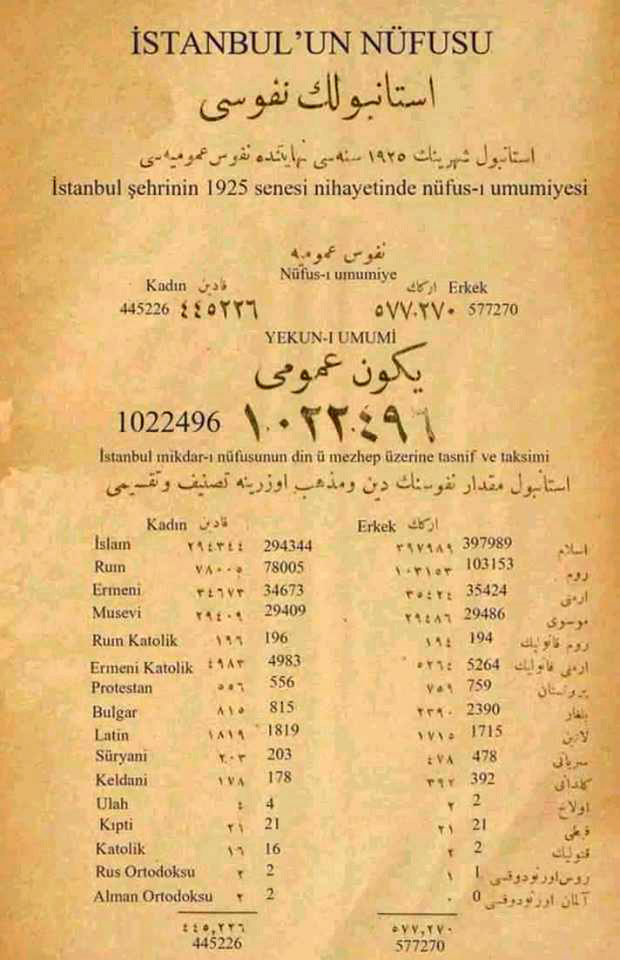 İSTANBUL'UN NÜFUSU
استانبولك نفوسی
استانبول شهرینك ١٩٢٥ سنه‌سی نهایتنده نفوس عمومیه‌سی
İstanbul şehrinin 1925 senesi nihayetinde nüfus-ı umumiyesi
نفوس عمومیه
Nüfus-ı umumiye
Kadın قادین ارکك Erkek
445226 ٤٤٥٢٢٦ ٥٧٧.٢٧٠ 577270
YEKUN-I UMUMİ
یکون عمومی
1022496 ١.٠٢٢.٤٩٦
İstanbul mikdar-ı nüfusunun din ü mezhep üzerine tasnif ve taksimi
استانبول مقدار نفوسنك دین ومذهب اوزرینه تصنیف وتقسیمی
Kadın قادین Erkek ارکك
İslam ٢٩٤٣٤٤ 294344 ٣٩٧٩٨٩ 397989 اسلام
Rum ٧٨٠٠٥ 78005 ١٠٣١٥٣ 103153 روم
Ermeni ٣٤٦٧٣ 34673 ٣٥٤٢٤ 35424 ارمنی
Musevi ٢٩٤٠٩ 29409 ٢٩٤٨٦ 29486 موسوی
Rum Katolik ١٩٦ 196 ١٩٤ 194 روم قاتولیك
Ermeni Katolik ٤٩٨٣ 4983 ٥٢٦٤ 5264 ارمنی قاتولیك
Protestan ٥٥٦ 556 ٧٥٩ 759 پروتستان
Bulgar ٨١٥ 815 ٢٣٩٠ 2390 بلغار
Latin ١٨١٩ 1819 ١٧١٥ 1715 لاتین
Süryani ٢٠٣ 203 ٤٧٨ 478 سریانی
Keldani ١٧٨ 178 ٣٩٢ 392 كلدانی
Ulah ٤ 4 ٢ 2 اولاح
Kıpti ٢١ 21 ٢١ 21 قبطی
Katolik ١٦ 16 ٢ 2 قتولیك
Rus Ortodoksu ٢ 2 ١ 1 روس اورتودوقسی
Alman Ortodoksu ٢ 2 ٠ 0 آلمان اورتودوقسی
٤٤٥,٢٢٦ ٥٧٧,٢٧٠
445226 577270